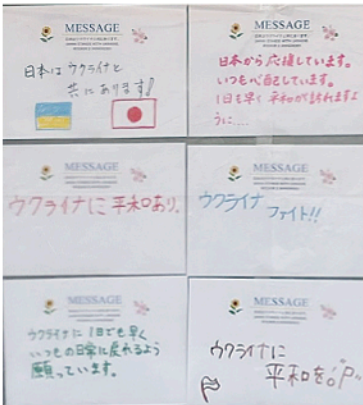 MESSAGE
日本は ウクライナと
共にあります!
MESSAGE
日本から応援しています。
いつも心配しています。
1日も早く 平和が訪れますよ
うに....
MESSAGE
ウクライナに 平和あり。
MESSAGE
ウクライナ
ファイト!!
MESSAGE
ウクライナに 1日でも早く
いつもの日常に戻れるよう
願っています。
MESSAGE
ウクライナに
平和を